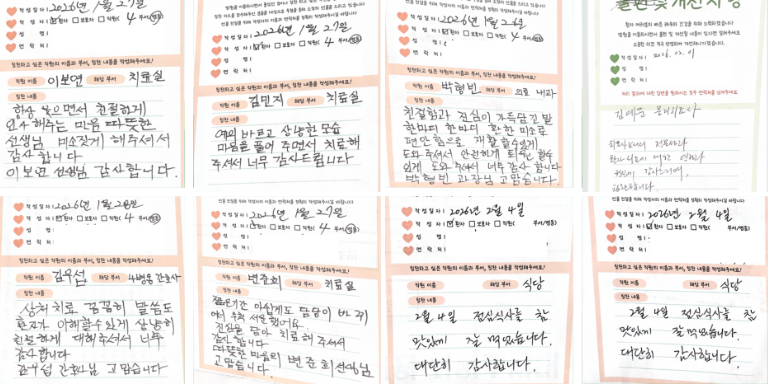 작 성 일 자 : 2026년 1월 27일
작 성 자 : ☑환자 □보호자 □직원( 4 부서/병동)
성 명 :
연 락 처 :
칭찬하고 싶은 직원의 이름과 부서, 칭찬 내용을 작성해주세요!
직원 이름 이보연 해당 부서 치료실
칭찬 내용
항상 웃으면서 친절하게
인사해주는 마음 따뜻한
선생님 미소짓게 해주셔서
감사합니다
이보연 선생님 감사합니다.
작 성 일 자 : 2026년 1월 27일
작 성 자 : ☑환자 □보호자 □직원( 4 부서/병동)
성 명 :
연 락 처 :
칭찬하고 싶은 직원의 이름과 부서, 칭찬 내용을 작성해주세요!
직원 이름 김민지 해당 부서 치료실
칭찬 내용
예의 바르고 상냥한 모습
마음을 풀어 주면서 치료해
주셔서 너무 감사드립니다
작 성 일 자 : 2026년 1월 26일
작 성 자 : ☑환자 □보호자 □직원( 4 부서/병동)
성 명 :
연 락 처 :
칭찬하고 싶은 직원의 이름과 부서, 칭찬 내용을 작성해주세요!
직원 이름 박형빈 해당 부서 의료 내과
칭찬 내용
친절함과 진심이 가득담긴 말
한마디 한마디 환한 미소로
편안함으로 재활할수있게
도와주셔서 안전하게 퇴원할수
있게 도와주셔서 너무감사 합니다
박형빈 과장님 고맙습니다.
불편 및 개선사항
작 성 일 자 : 2026. 02. 01
작 성 자 :
성 명 :
연 락 처 :
김예은 물리치료사
작 성 일 자 : 2026년 1월 28일
작 성 자 : ☑환자 □보호자 □직원( 4 부서/병동)
성 명 :
연 락 처 :
칭찬하고 싶은 직원의 이름과 부서, 칭찬 내용을 작성해주세요!
직원 이름 김우섭 해당 부서 4병동 간호사
칭찬 내용
상처치료 꼼꼼히 말씀도
환자가 이해할수있게 상냥히
친절하게 대해주셔서 너무
감사합니다
김우섭 간호사님 고맙습니다
작 성 일 자 : 2026년 1월 27일
작 성 자 : ☑환자 □보호자 □직원( 4 부서/병동)
성 명 :
연 락 처 :
칭찬하고 싶은 직원의 이름과 부서, 칭찬 내용을 작성해주세요!
직원 이름 변준회 해당 부서 치료실
칭찬 내용
짧은기간 아쉽게도 담당이 바뀌
어서 무척 서운했어요
진심을 담아 치료해 주셔서
감사 합니다
따뜻한 마음의 변준회선생님
고맙습니다.
작 성 일 자 : 2026년 2월 4일
작 성 자 : ☑환자 □보호자 □직원( 부서/병동)
성 명 :
연 락 처 :
칭찬하고 싶은 직원의 이름과 부서, 칭찬 내용을 작성해주세요!
직원 이름 해당 부서 식당
칭찬 내용
2월 4일 점심식사를 참
맛있게 잘 먹었습니다.
대단히 감사합니다.
작 성 일 자 : 2026년 2월 4일
작 성 자 : ☑환자 □보호자 □직원( 부서/병동)
성 명 :
연 락 처 :
칭찬하고 싶은 직원의 이름과 부서, 칭찬 내용을 작성해주세요!
직원 이름 해당 부서 식당
칭찬 내용
2월 4일 점심식사를 참
맛있게 잘 먹었습니다.
대단히 감사합니다.